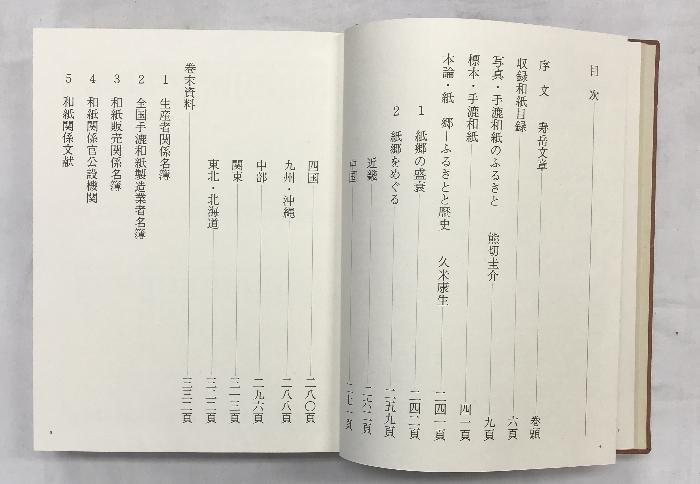 目次
序文 寿岳文章 巻頭
収録和紙目録 六頁
写真・手漉和紙のふるさと 熊切圭介 九頁
標本・手漉和紙 四一頁
本論・紙郷―ふるさとと歴史 久米康生 二四一頁
1 紙郷の盛衰 二四二頁
2 紙郷をめぐる 二五九頁
近畿 二六二頁
中国 二七一頁
四国 二八〇頁
九州・沖縄 二八八頁
中部 二九六頁
関東 三一三頁
東北・北海道 三二二頁
巻末資料 三三二頁
1 生産者関係名簿
2 全国手漉和紙製造業者名簿
3 和紙販売関係名簿
4 和紙関係官公設機関
5 和紙関係文献